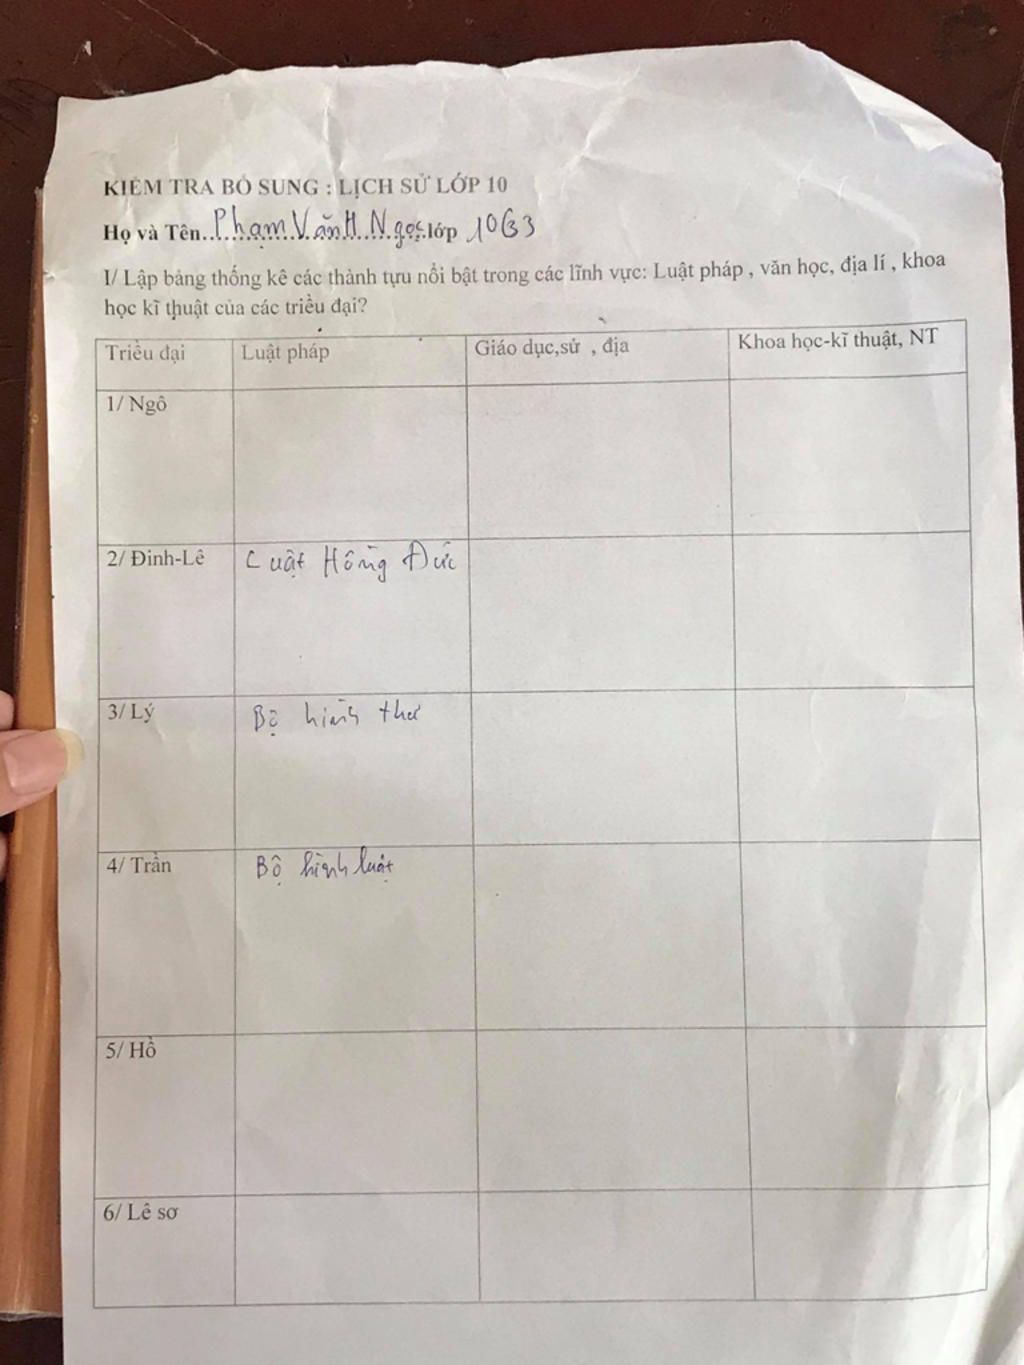 KIỂM TRA BỔ SUNG : LỊCH SỬ LỚP 10
Họ và Tên..Phạm Văn H Ngọc..lớp 10G3
I/ Lập bảng thống kê các thành tựu nổi bật trong các lĩnh vực: Luật pháp , văn học, địa lí , khoa
học kĩ thuật của các triều đại?
Triều đại Luật pháp Giáo dục,sử , địa Khoa học-kĩ thuật, NT
1/ Ngô
2/ Đinh-Lê Luật Hồng Đức
3/ Lý Bộ hình thư
4/ Trần Bộ hình luật
5/ Hồ
6/ Lê sơ